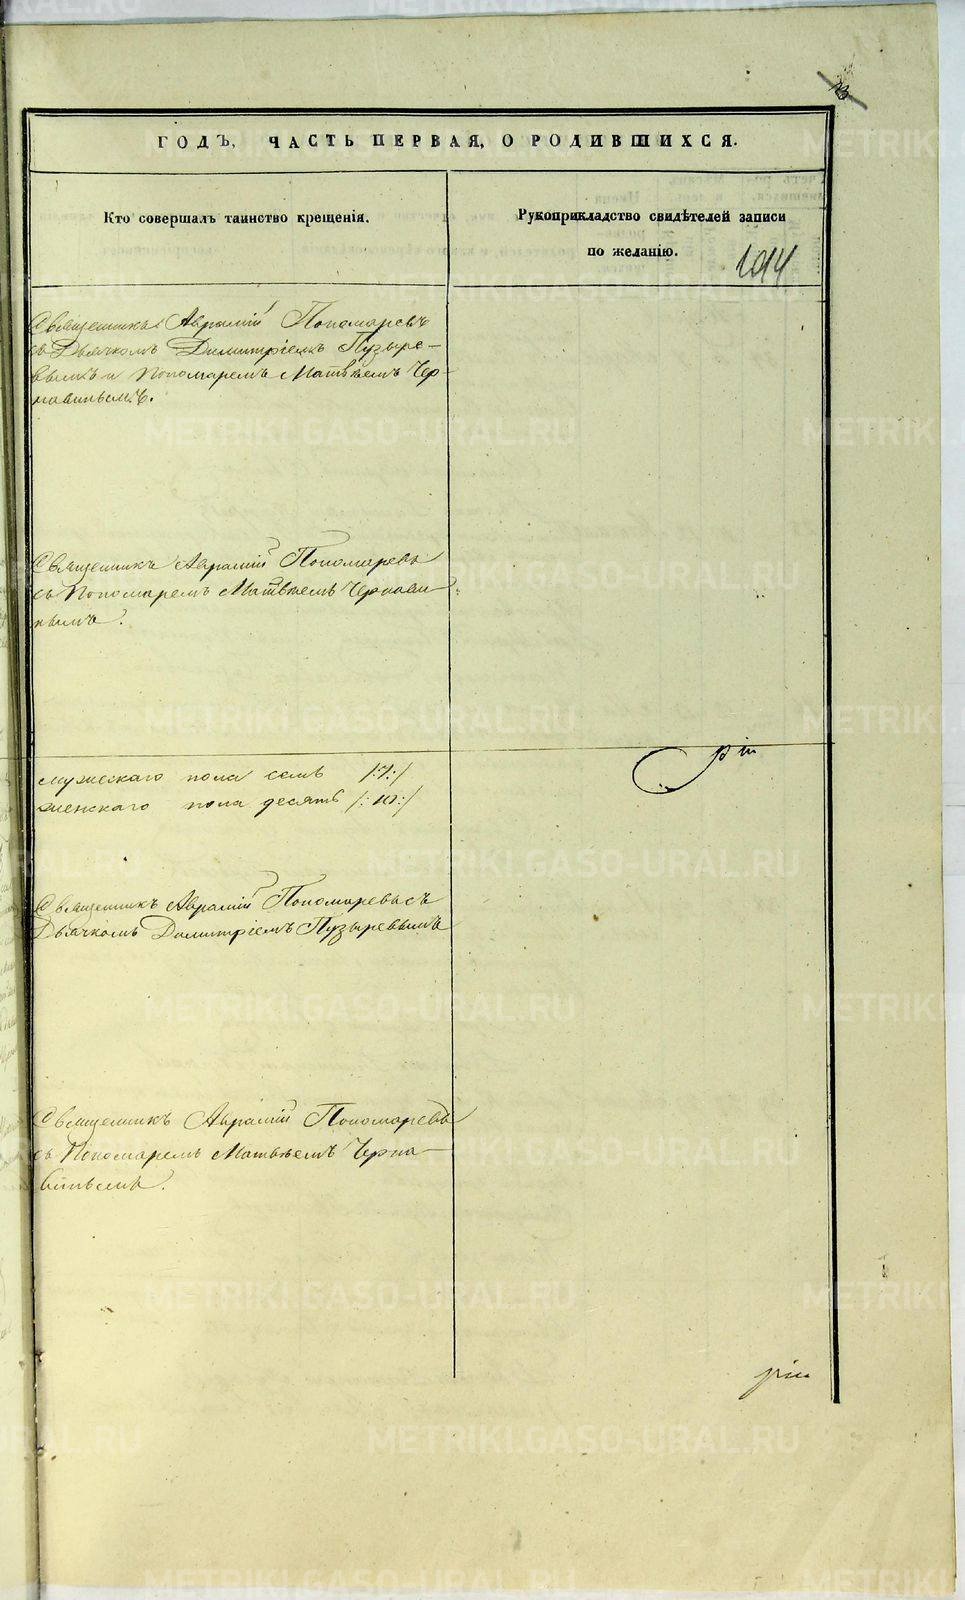 ГОДЪ, ЧАСТЬ ПЕРВАЯ, О РОДИВШИХСЯ.
Кто совершалъ таинство крещенія.
Рукоприкладство свидѣтелей записи
по желанію.
1014
Священникъ Аврамій Пономаревъ
съ Дьячкомъ Димитріемъ Пузыре-
вымъ и Пономаремъ Матвѣемъ Чер-
навинымъ.
Священникъ Аврамій Пономаревъ
съ Пономаремъ Матвѣемъ Чернави
нымъ.
мужескаго пола семь /:7:/
женскаго пола десять /:10:/
Священникъ Аврамій Пономаревъ съ
Дьячкомъ Димитріемъ Пузыревымъ
Священникъ Аврамій Пономаревъ
съ Пономаремъ Матвѣемъ Черна-
винымъ.
METRIKI.GASO-URAL.RU